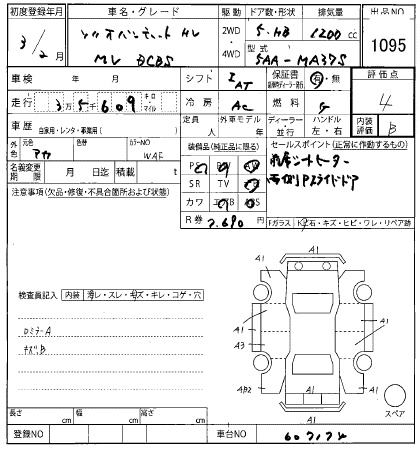 初度登録年月
車名・グレード
駆動
ドア数・形状
排気量
出品NO
3/2月
ソリオバンディット HV
MV DCBS
2WD
4WD
5・HB
1200 cc
型式
5AA-MA37S
1095
車検
年 月
シフト
IAT
保証書
有・無
評価点
4
走行
3万5千609
キロ
マイル
冷房
AC
燃料
G
車歴
自家用・レンタ・事業用( )
定員
人
外車モデル
年
ディーラー
並行
ハンドル
左・右
内装評価
B
外色
元色
アカ
色替
カラーNO
WAF
装備品(純正品に限る)
PS
PW
AW
SR
TV
カワ
エアB
ABS
R券
7.690
セールスポイント(正常に作動するもの)
前席シートヒーター
両側Pスライドドア
名義変更期限
月 日迄
積載
t
注意事項(欠品・修復・不具合箇所および状態)
Fガラス
飛石・キズ・ヒビ・ワレ・リペア跡
検査員記入
内装
汚レ・スレ・キズ・キレ・コゲ・穴
ロミラーA
キズ、B
A1
A1
A1
A1
A1
A3
A1
4B2
A1
スペア
長さ
cm
幅
cm
高さ
cm
登録NO
車台NO